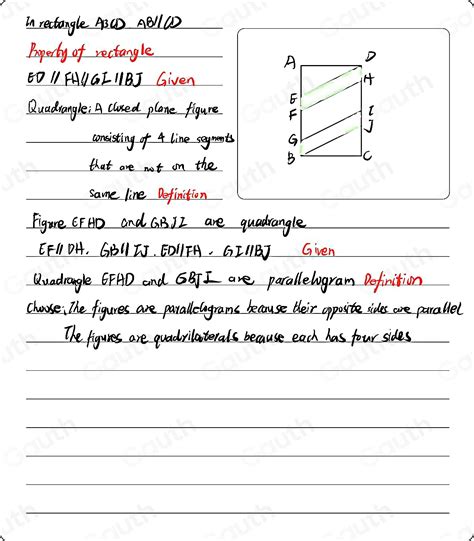 In rectangle ABCD AB//CD
Property of rectangle
ED // FH//GI//BJ Given
Quadrangle: A closed plane figure
consisting of 4 line segments
that are not on the
same line Definition
Figure EFHD and GBJI are quadrangle
EF// DH. GB// IJ. ED//FH. GI//BJ Given
Quadrangle EFHD and GBJI are parallelogram Definition
Choose: The figures are parallelograms because their opposite sides are parallel
The figures are quadrilaterals because each has four sides
A D
H
E
F
G I
J
B C
Gauth